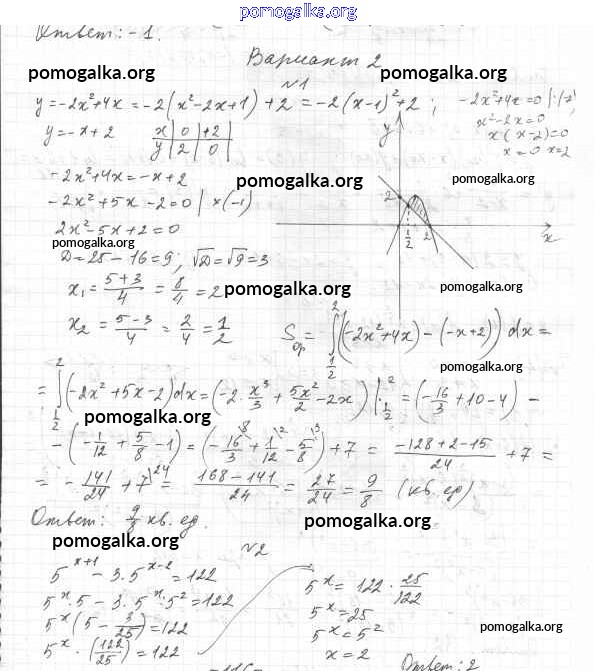 pomogalka.org
Ответ: -1.
Вариант 2
pomogalka.org pomogalka.org pomogalka.org
№1
y=-2x²+4x=-2(x²-2x+1)+2=-2(x-1)²+2; -2x²+4x=0 |:(-2)
x²-2x=0
x(x-2)=0
x=0 x=2
y=-x+2 x | 0 | +2
y | 2 | 0
y
-2x²+4x=-x+2
pomogalka.org pomogalka.org
-2x²+5x-2=0 | ×(-1)
2
2x²-5x+2=0
1/2 2 x
pomogalka.org
D=25-16=9; √D=√9=3
x₁=(5+3)/4=8/4=2
pomogalka.org pomogalka.org
x₂=(5-3)/4=2/4=1/2 Sф=∫_{1/2}^{2}((-2x²+4x)-(-x+2))dx=
pomogalka.org
=∫_{1/2}^{2}(-2x²+5x-2)dx=(-2·x³/3+5x²/2-2x)|_{1/2}^{2}=(-16/3+10-4)-
pomogalka.org
-(-1/12+5/8-1)=(-16/3+1/12-5/8)+7=(-128+2-15)/24+7=
=-141/24+7=(168-141)/24=27/24=9/8 (кв. ед)
pomogalka.org
Ответ: 9/8 кв. ед.
pomogalka.org
pomogalka.org
№2
5^{x+1}-3·5^{x-2}=122
5^x·5-3·5^x·5²=122
5^x(5-3/25)=122
5^x·(122/25)=122
5^x=122·25/122
5^x=25
5^x=5²
x=2
pomogalka.org
Ответ: 2